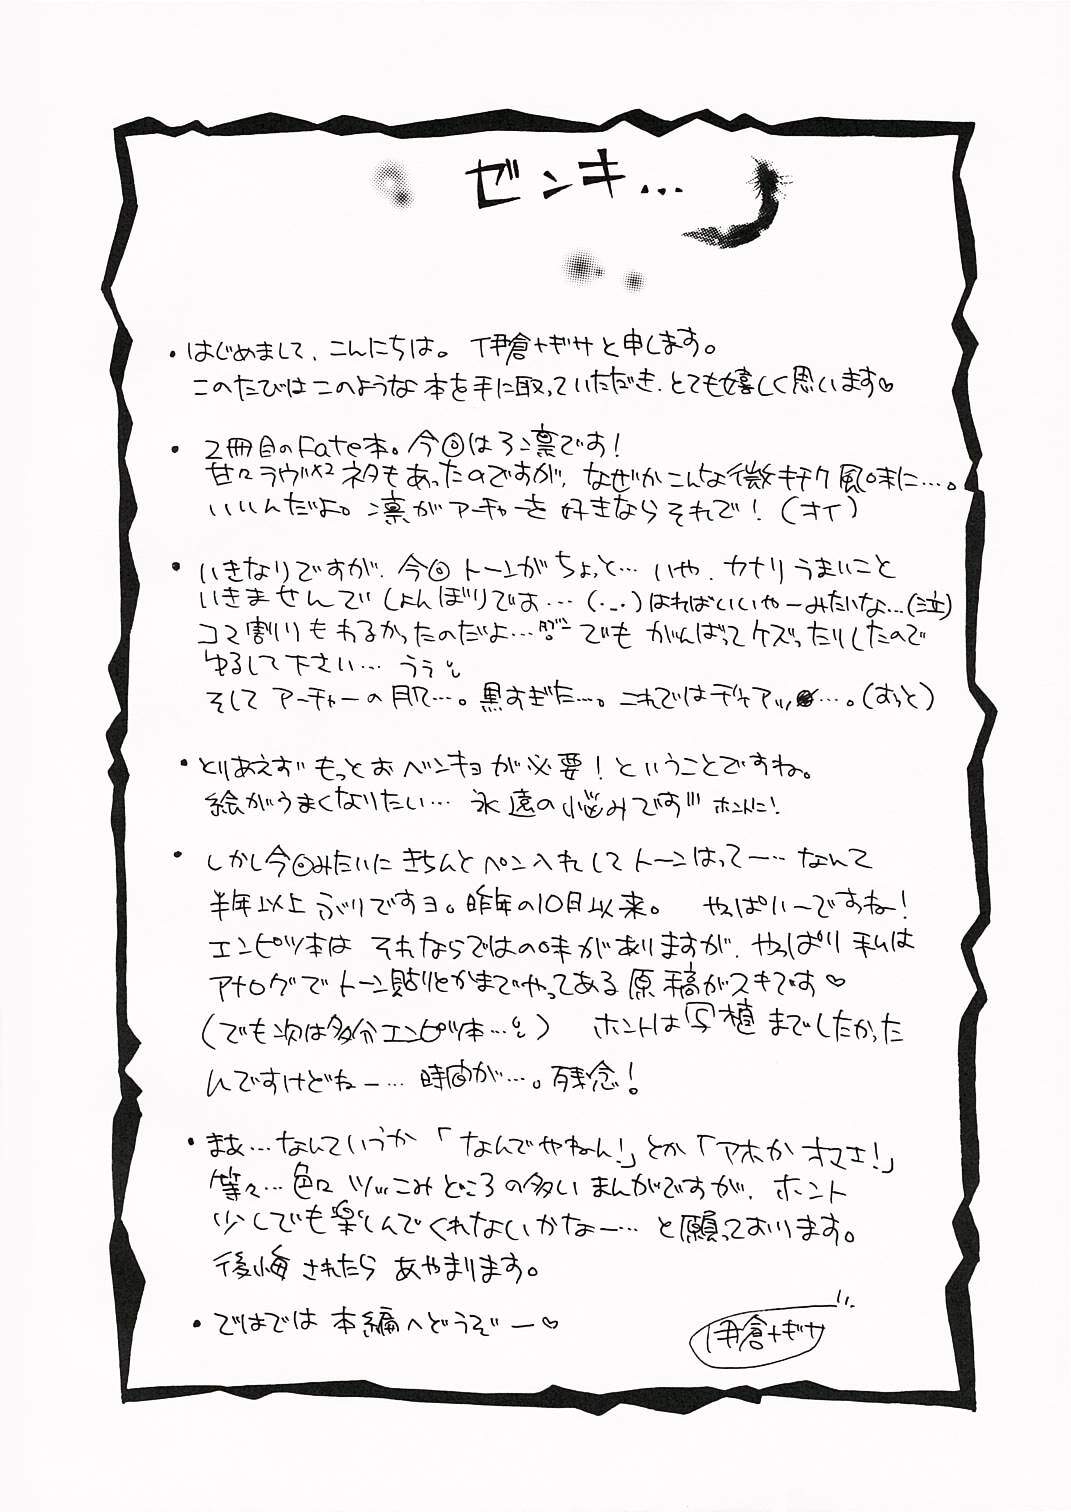 ゼンキ...
・はじめまして、こんにちは。伊倉ナギサと申します。
このたびはこのような本を手に取っていただき、とても嬉しく思います♡
・2冊目のFate本。今回は弓凛です!
甘々ラヴ×2ネタもあったのですが、なぜかこんな微キチク風味に…。
いいんだよ。凛がアーチャーを好きならそれで!(オイ)
・いきなりですが、今回トーンがちょっと…いや、カナリうまいこと
いきませんでしょんぼりです…(._.)はればいいやーみたいな…(泣)
コマ割りもわるかったのだよ… でもがんばってケズったりしたので
ゆるして下さい…うぅ
そしてアーチャーの肌…。黒すぎた…。これではディアッ…。(おっと)
・とりあえずもっとおベンキョが必要!ということですね。
絵がうまくなりたい…永遠の悩みです!!!ホントに!
・しかし今回みたいにきちんとペン入れしてトーンはってー…なんて
半年以上ぶりですヨ。昨年の10月以来。やっぱいーですね!
エンピツ本はそれならではの味がありますが、やっぱり私は
アナログでトーン貼りとかまでやってある原稿がスキです♡
(でも次は多分エンピツ本…)ホントは写植までしたかった
んですけどねー…時間が…。残念!
・まあ…なんていうか「なんでやねん!」とか「アホかオマエ!」
等々…色々ツッこみどころの多いまんがですが、ホント
少しでも楽しんでくれないかなー…と願っております。
後悔されたらあやまります。
・ではでは本編へどうぞー♡
伊倉ナギサ